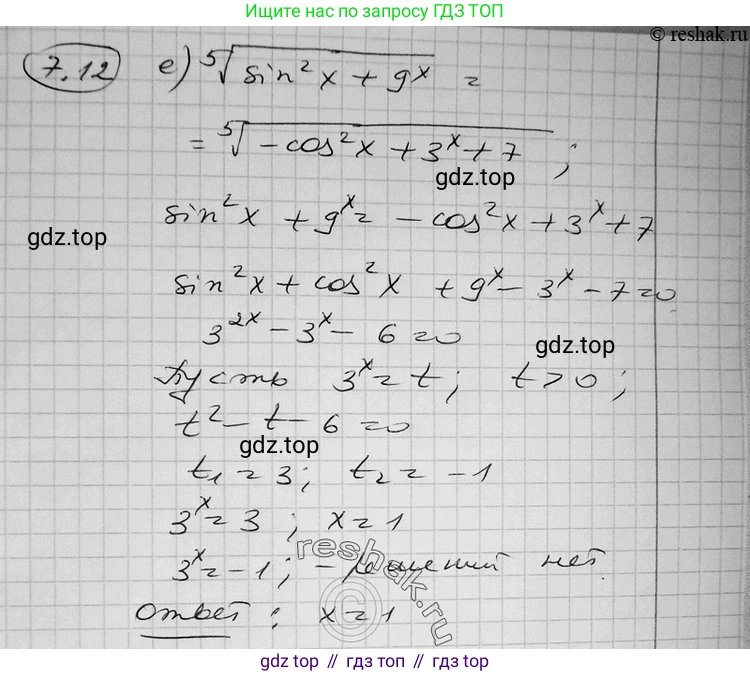 Ищите нас по запросу ГДЗ ТОП
© reshak.ru
7.12 е) ⁵√(sin²x + 9ˣ) =
= ⁵√(-cos²x + 3ˣ + 7) ;
gdz.top
sin²x + 9ˣ = -cos²x + 3ˣ + 7
gdz.top
sin²x + cos²x + 9ˣ - 3ˣ - 7 = 0
3²ˣ - 3ˣ - 6 = 0
gdz.top
Пусть 3ˣ = t; t > 0;
t² - t - 6 = 0
gdz.top
t₁ = 3; t₂ = -1
3ˣ = 3 ; x = 1
3ˣ = -1; - решений нет.
reshak.ru
©
Ответ: x = 1
gdz.top // гдз топ // gdz.top